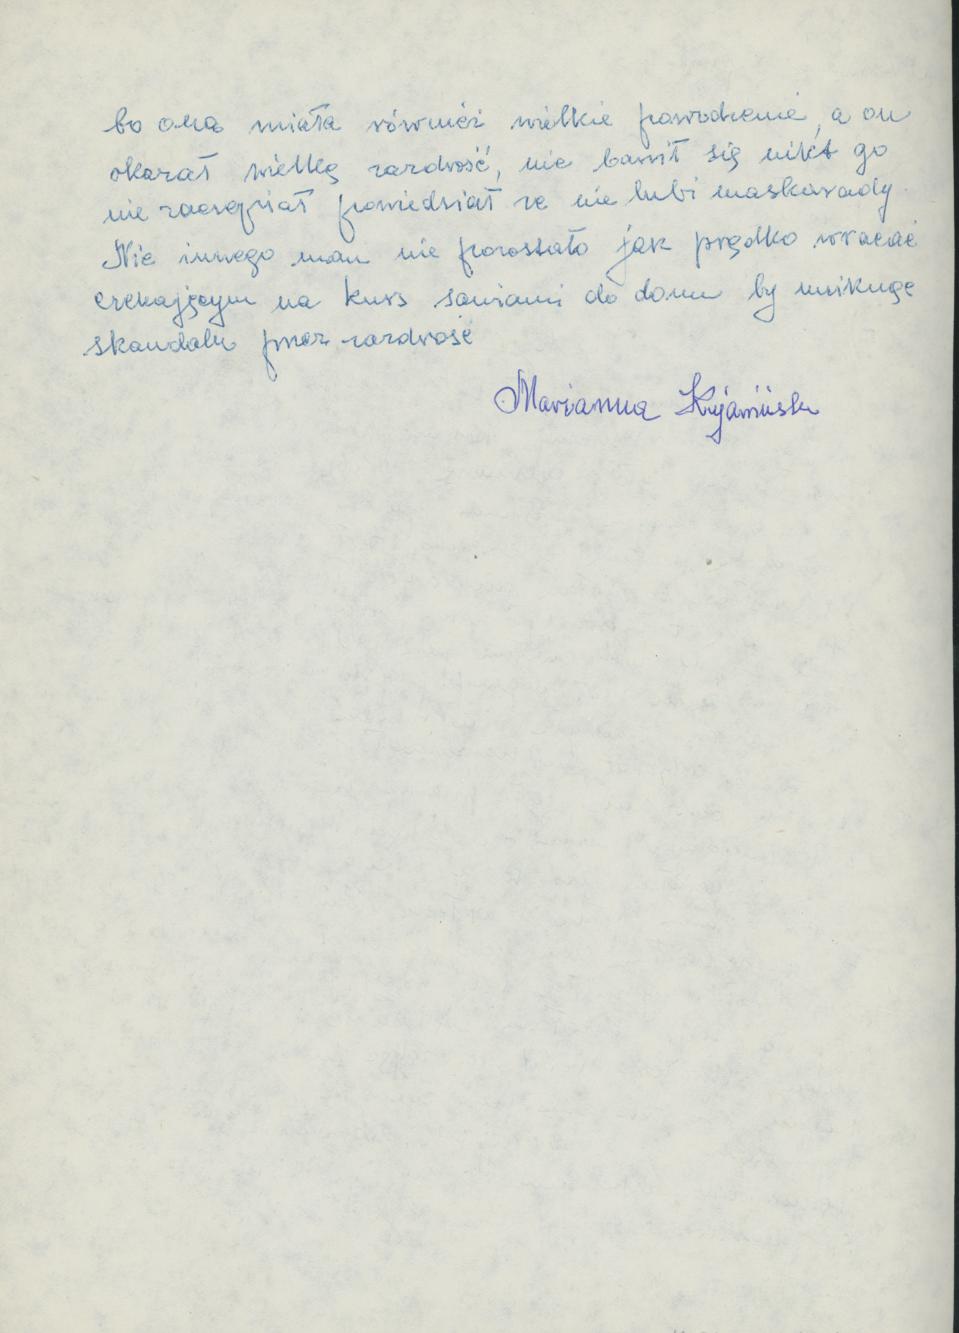 bo ona miała również wielkie powodzenie, a on
okazał wielką zazdrość, nie bawił się nikt go
nie zaczepiał powiedział ze nie lubi maskarady.
Nic innego nam nie pozostało jak prędko wracać
czekającym na kurs saniami do domu by uniknąć
skandalu przez zazdrość
Marianna Kujawińska